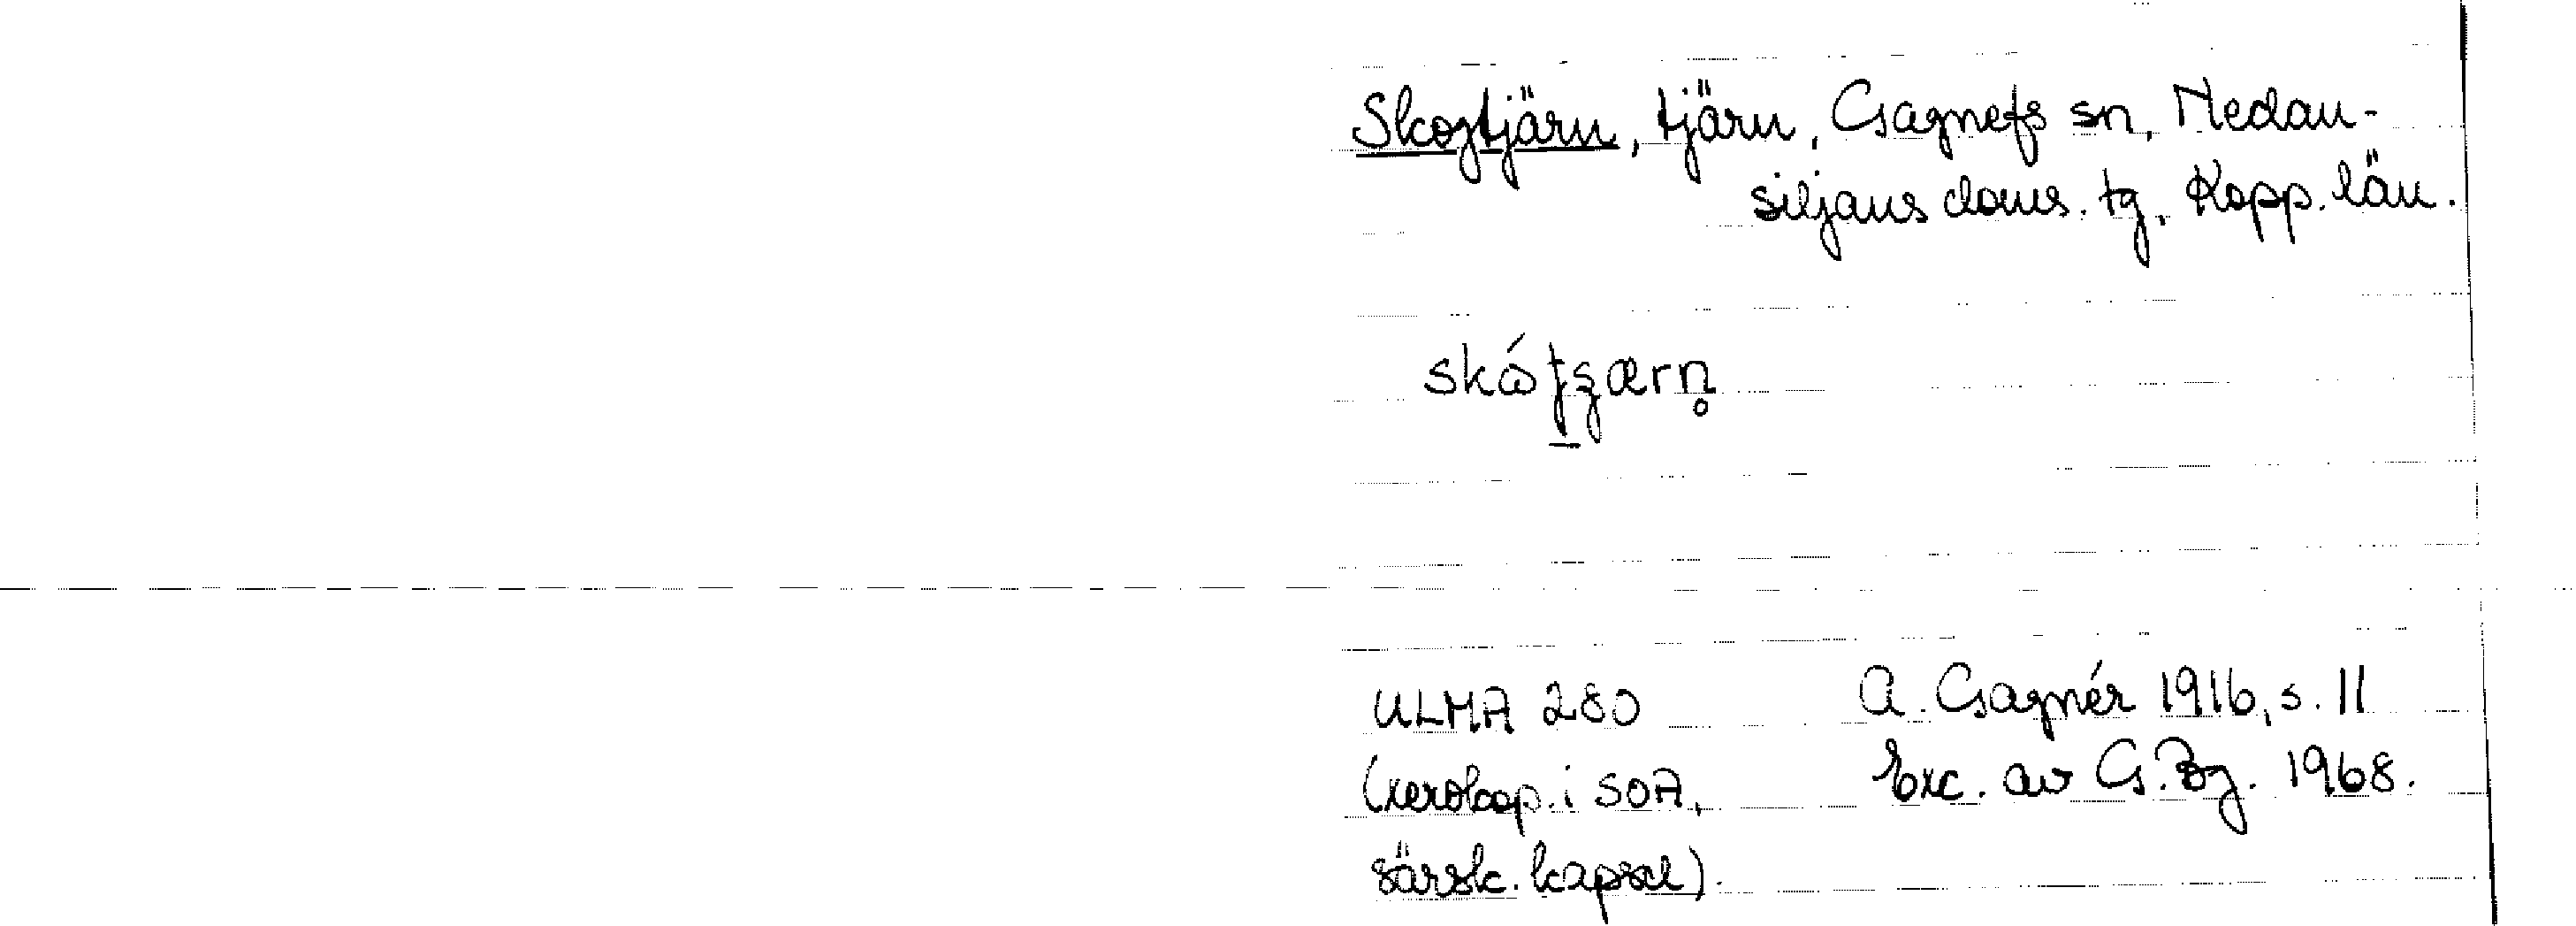 Skogtjärn, tjärn, Gagnefs sn, Nedan-
siljans doms. tg, Kopp. län.
ULMA 280
A. Gagnér 1916, s. 11
(xerokop. i SOA,
Exc. av G. Bg. 1968.
särsk. kapsel).